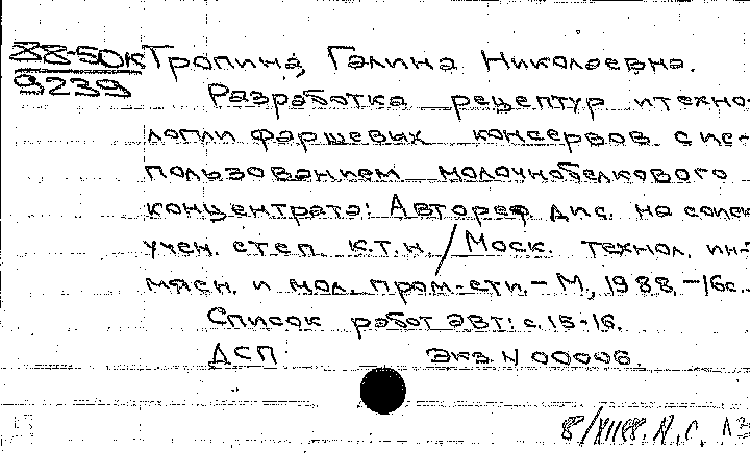 88-50к Тропина, Галина Николаевна.
9239
Разработка рецептур и техно-
логии фаршевых консервов с ис-
пользованием молочнобелкового
концентрата: Автореф дис. на соиск
учен. степ. к.т.н. / Моск. технол. ин-т
мясн. и мол. пром-сти. – М., 1988. – 16с.
Список работ авт: с.15-16.
ДСП Экз N 00006.
8/XII88. А.С.